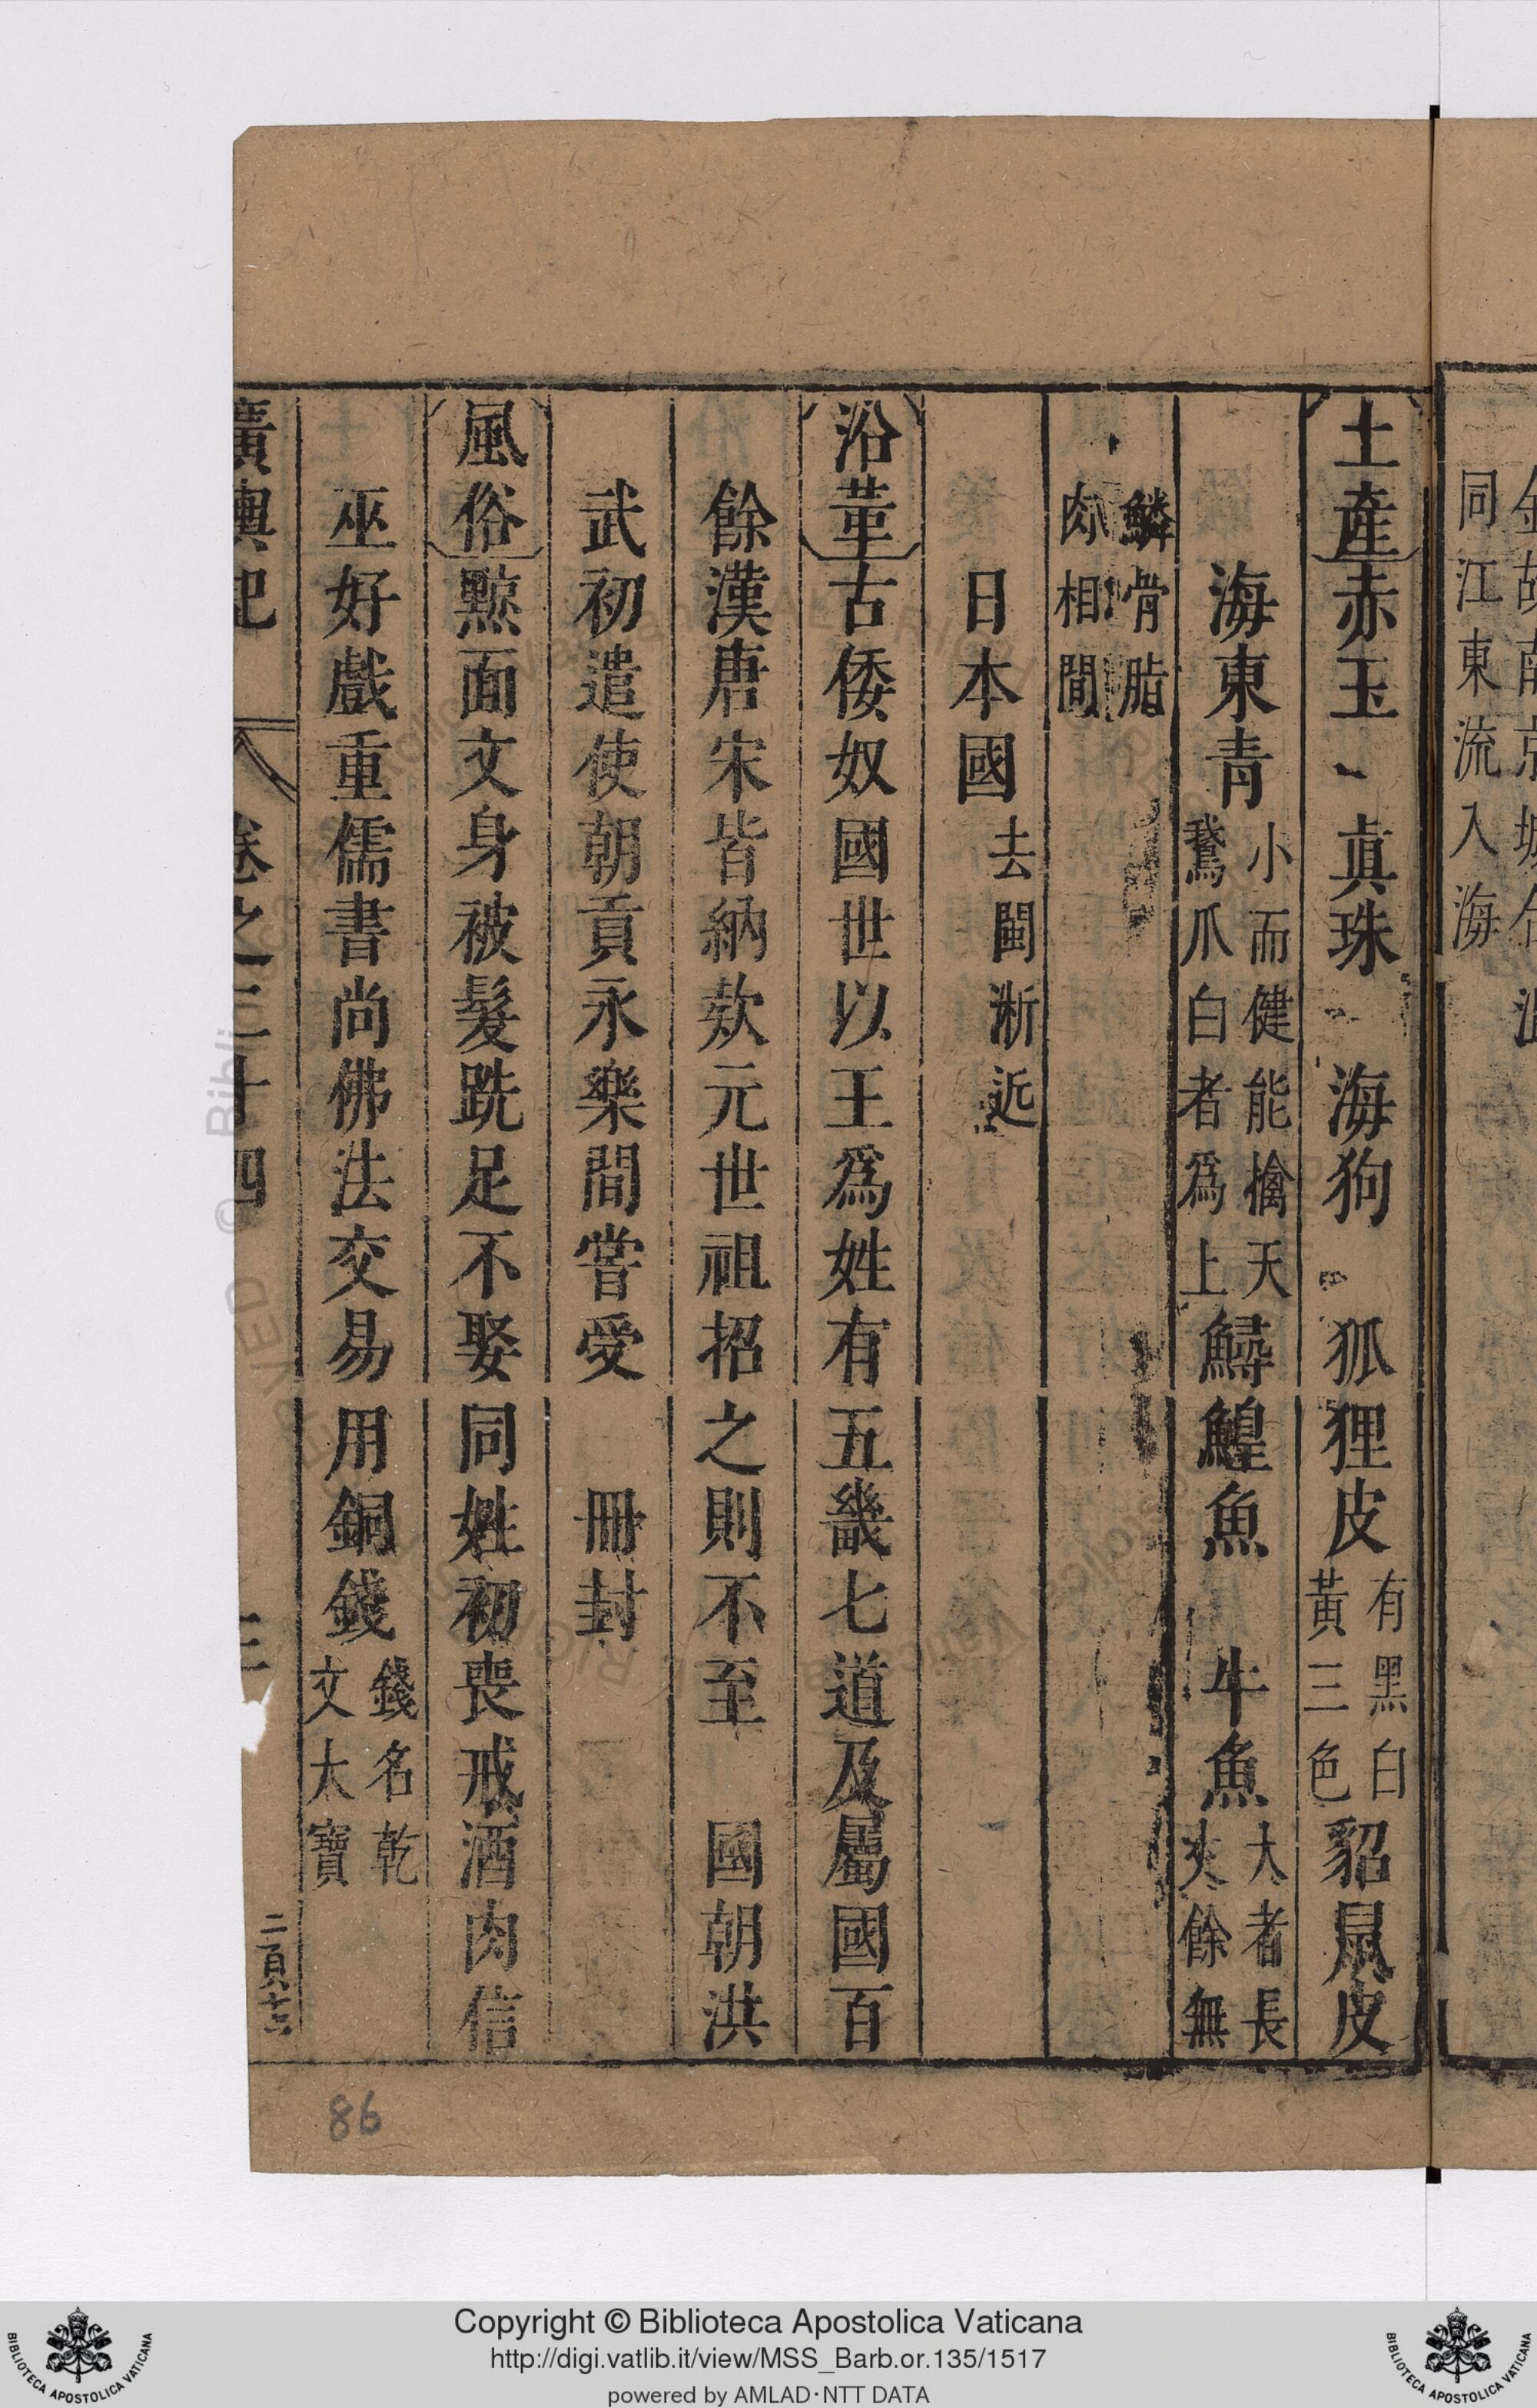 同江東流入海
土産赤玉 眞珠 海狗 狐狸皮有黑白黃三色貂鼠皮
海東青小而健能擒天鵞爪白者爲上鱘鰉魚 牛魚大者長夾餘無
鱗骨脂肉相間
日本國去閩浙近
沿革古倭奴國世以王爲姓有五畿七道及屬國百
餘漢唐宋皆納欵元世祖招之則不至 國朝洪
武初遣使朝貢永樂間嘗受 冊封
風俗黥面文身被髮跣足不娶同姓初喪戒酒肉信
巫好戲重儒書尚佛法交易用銅錢錢名乾文太寶
廣輿記 卷之二十四 三
二頁十三
86
Copyright © Biblioteca Apostolica Vaticana
http://digi.vatlib.it/view/MSS_Barb.or.135/1517
powered by AMLAD·NTT DATA
BIBLIOTECA APOSTOLICA VATICANA
BIBLIOTECA APOSTOLICA VATICANA